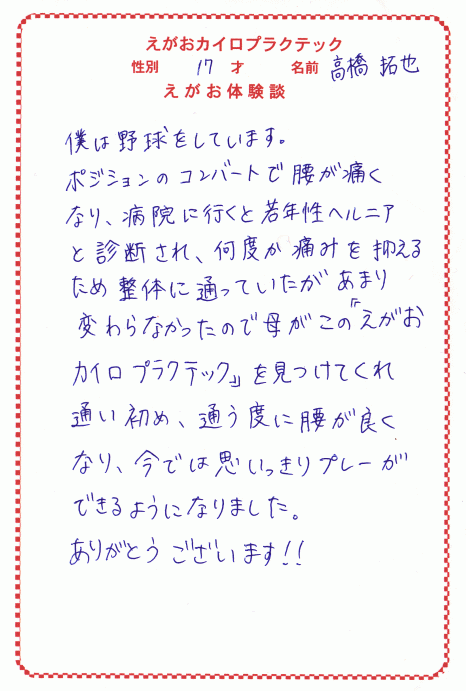 えがおカイロプラクテック
性別 17 才 名前 高橋 拓也
えがお体験談
僕は野球をしています。
ポジションのコンバートで腰が痛く
なり、病院に行くと若年性ヘルニア
と診断され、何度か痛みを抑える
ため整体に通っていたがあまり
変わらなかったので母がこの『えがお
カイロプラクテック』を見つけてくれ
通い初め、通う度に腰が良く
なり、今では思いっきりプレーが
できるようになりました。
ありがとうございます!!